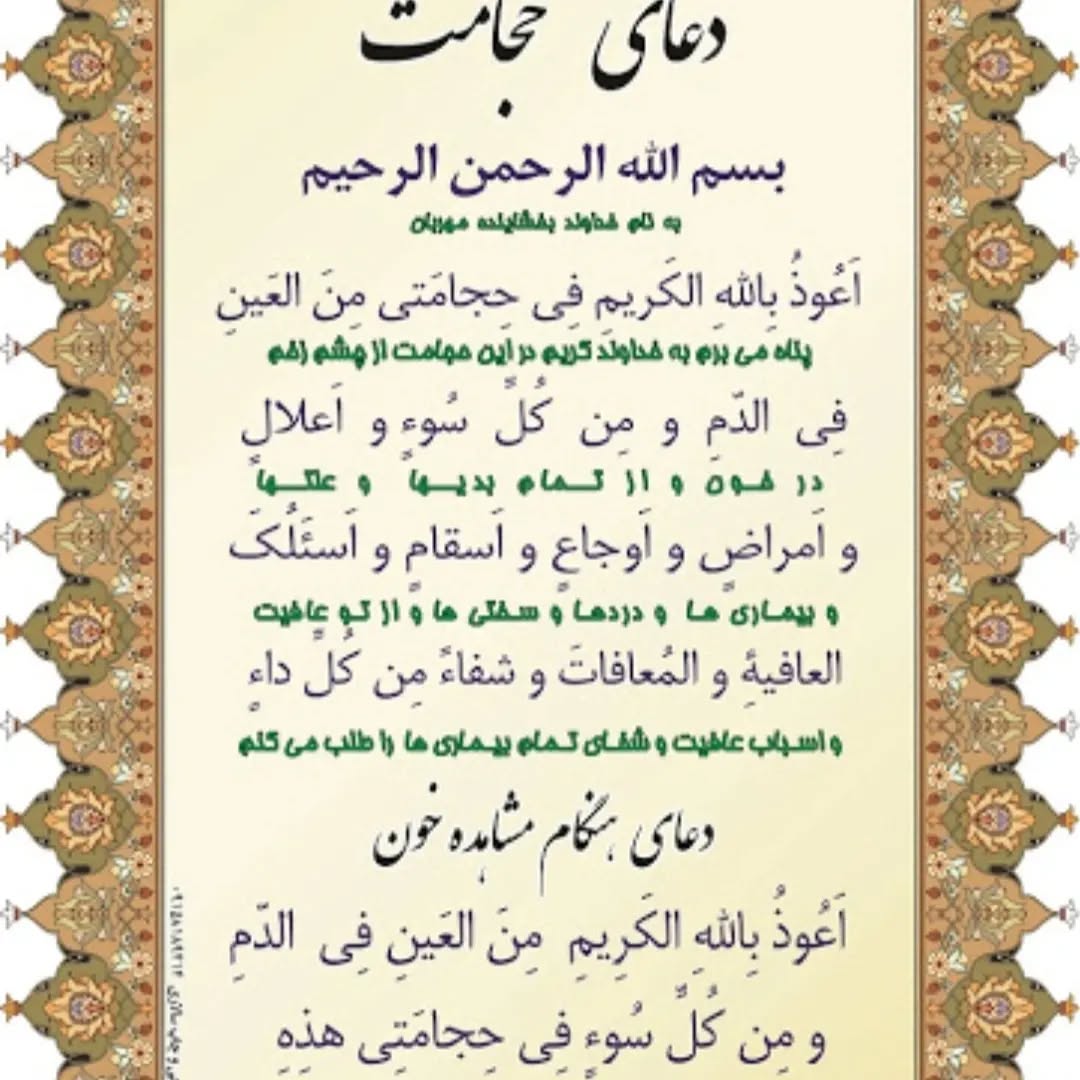 دعای حجامت
بسم الله الرحمن الرحیم
به نام خداوند بخشاینده مهربان
اَعُوذُ بِاللهِ الکَریمِ فِی حِجامَتی مِنَ العَینِ
پناه می برم به خداوند کریم در این حجامت از چشم زخم
فِی الدّمِ و مِن کُلِّ سُوءٍ و اَعلالٍ
در خون و از تمام بدیها و علتها
و اَمراضٍ و اَوجاعٍ و اَسقامٍ و اَسئَلُکَ
و بیماری ها و دردها و سختی ها و از تو عافیت
العافیةِ و المُعافاتَ و شفاءً مِن کُلِّ داءٍ
و اسباب عافیت و شفای تمام بیماری ها را طلب می کنم
دعای هنگام مشاهده خون
اَعُوذُ بِاللهِ الکَرِیمِ مِنَ العَینِ فِی الدّمِ
و مِن کُلِّ سُوءٍ فِی حِجامَتِی هذِهِ
و چاپ سالاری